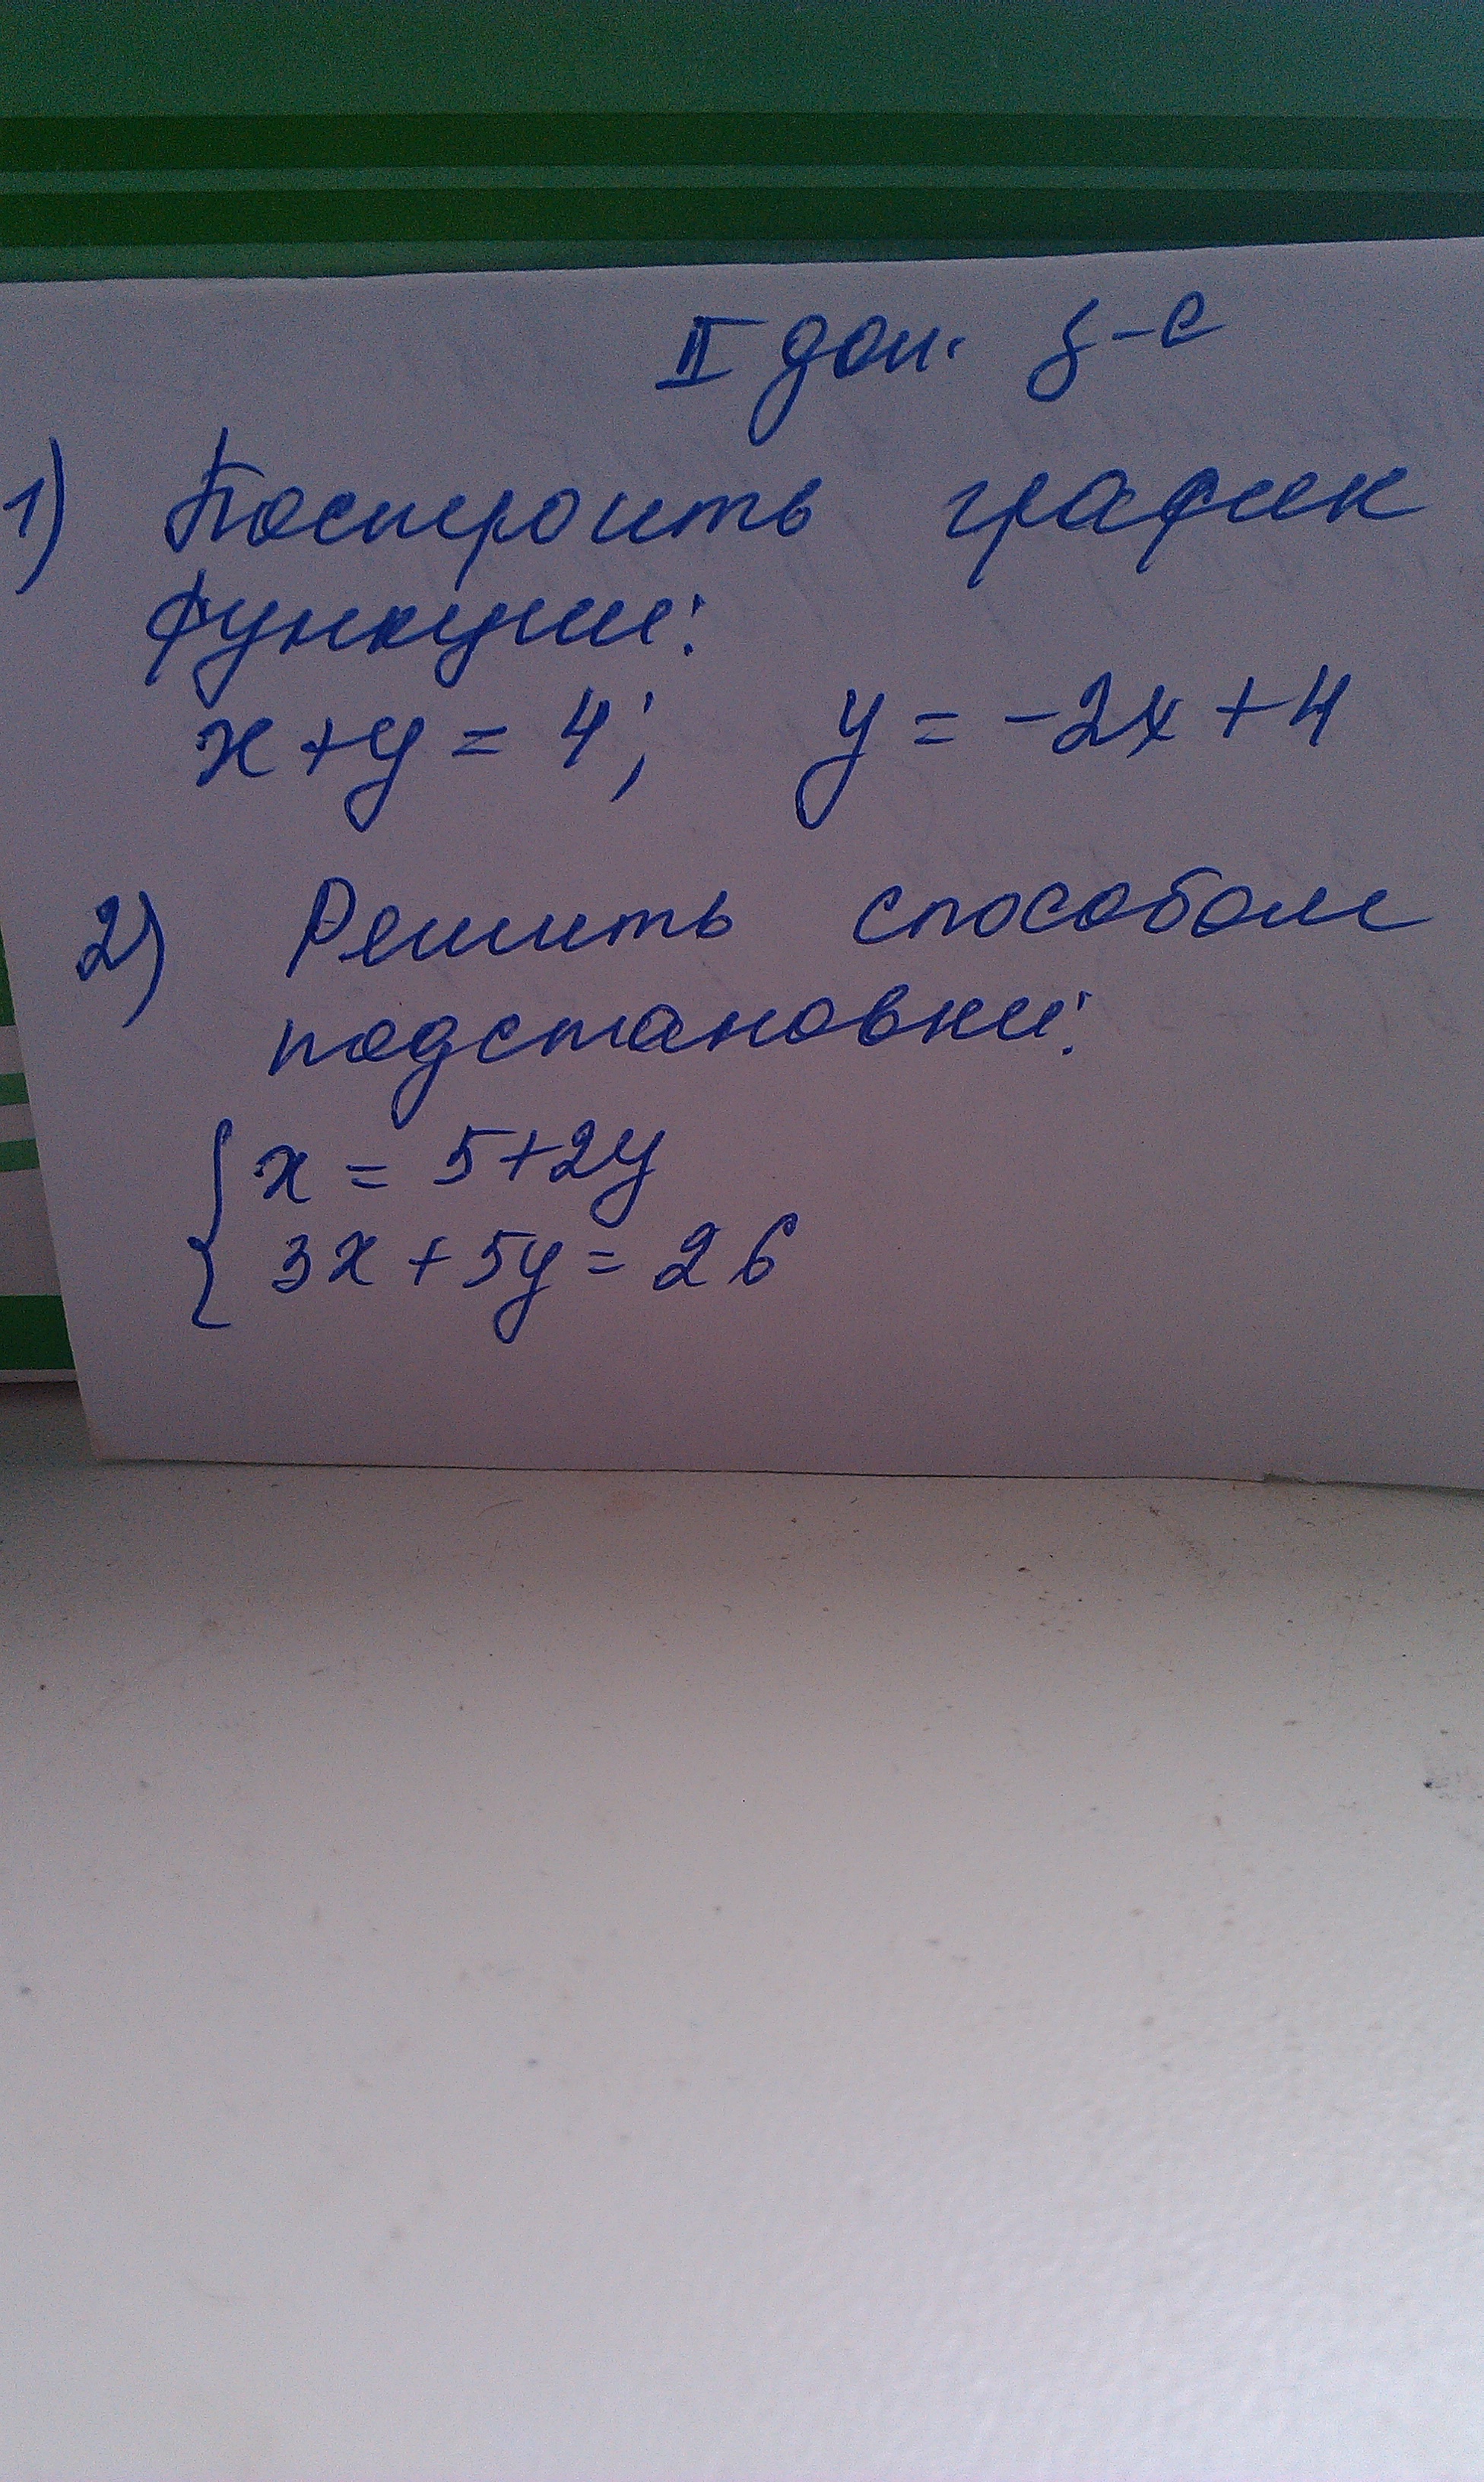 II доп. з-е
1) Построить график
функции:
x+y = 4; y = -2x+4
2) Решить способом
подстановки:
{ x = 5+2y
3x+5y=26